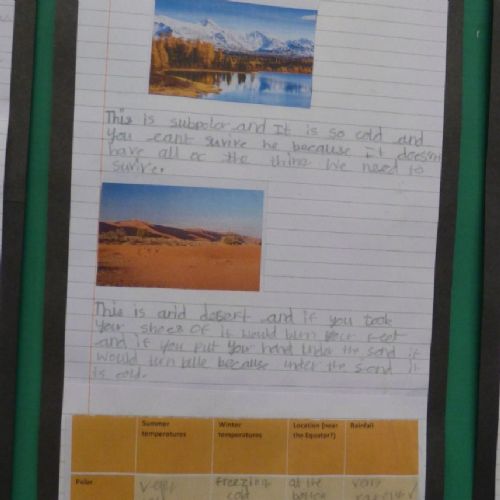 This is subpolar and It is so cold and
you cant survive he because it doesn
have all of the thing we need to
surive.
This is arid desert and if you took
your shoes of it would burn your feet
and if you put your hand under the sand it
would turn blue because under the sand it
is cold.
Summer temperatures Winter temperatures Location (near the Equator?) Rainfall
Polar very freezing cold at the very